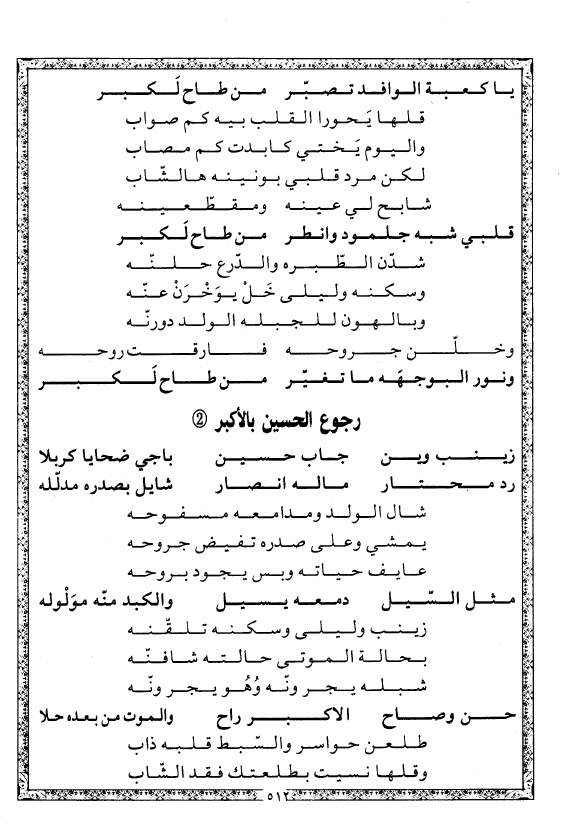 يا كعبة الوافد تصبّر من طاح لَكبر
قلها يَحورا القلب بيه كم صواب
واليوم يَختي كابدت كم مصاب
لكن مرد قلبي بونينه هالشّاب
شابح لي عينه ومقطّعينه
قلبي شبه جلمود وانطر من طاح لَكبر
شدّن الطّبره والدّرع حلنّه
وسكنه وليلى خَلْ يوَخْرَنْ عنّه
وبالهون للجبله الولد دورنّه
وخلّن جروحه فارقت روحه
ونور البوجهَه ما تغيّر من طاح لَكبر
رجوع الحسين بالأكبر ②
زينب وين جاب حسين باجي ضحايا كربلا
رد محتار ماله انصار شايل بصدره مدلّله
شال الولد ومدامعه مسفوحه
يمشي وعلى صدره تفيض جروحه
عايف حياته وبس يجود بروحه
مثل السّيل دمعه يسيل والكبد منّه مولْوله
زينب وليلى وسكنه تلقنّه
بحالة الموتى حالته شافنّه
شبله يجر ونّه وُهُو يجر ونّه
حن وصاح الاكبر راح والموت من بعده حلا
طلعن حواسر والسّبط قلبه ذاب
وقلها نسيت بطلعتك فقد الشّاب
٥١٢